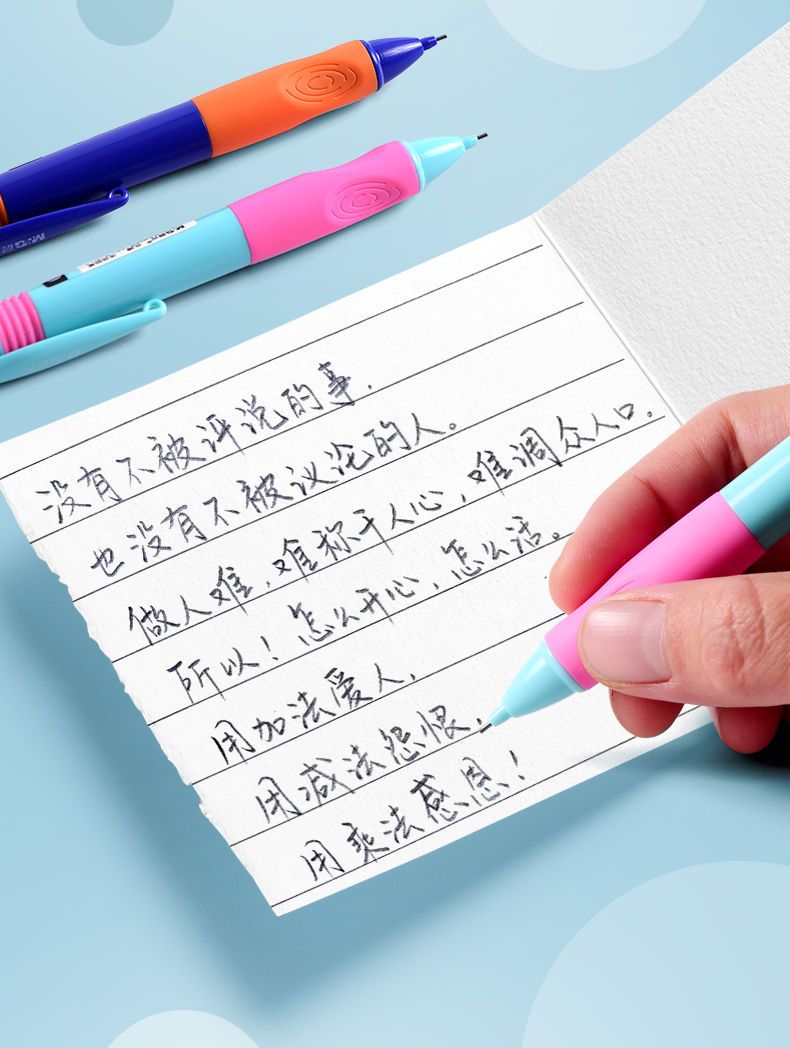 M&G
没有不被评说的事，
也没有不被议论的人。
做人难，难称千人心，难调众人口。
所以！怎么开心，怎么活。
用加法爱人，
用减法怨恨，
用乘法感恩！